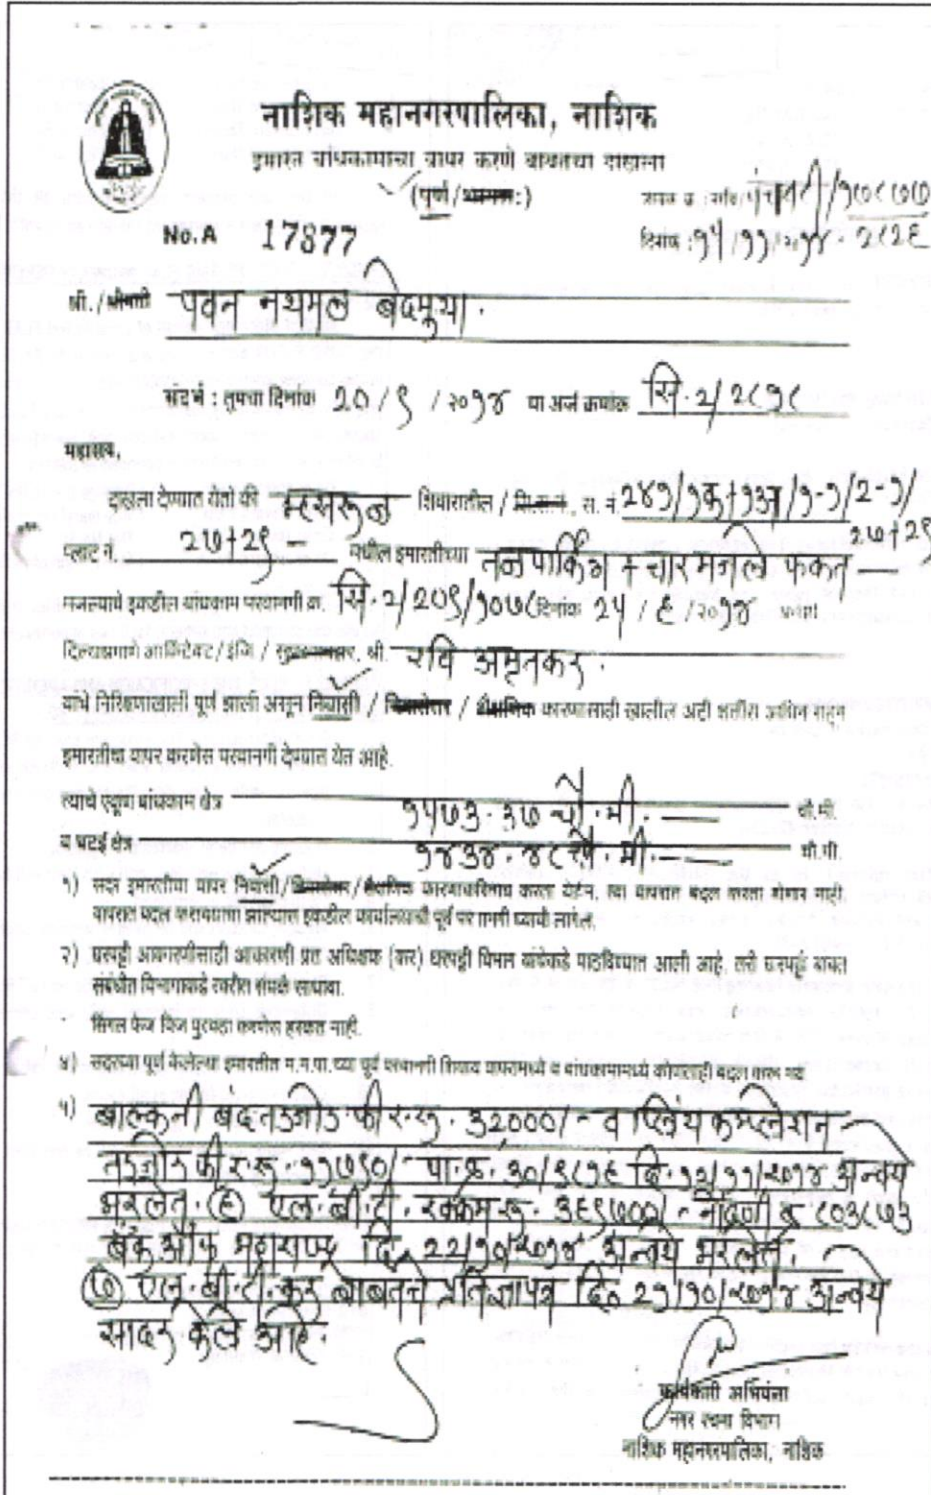 नाशिक महानगरपालिका, नाशिक
इमारत बांधकामाचा वापर करणे बाबतचा दाखला
(पूर्ण/भागशः)
जावक क्र. /पंचवटी/१७८७७
No. A 17877
दिनांक : १५/११/२०१४. २८२६
श्री./श्रीमती पवन नथमल बेदमुथा.
संदर्भ : तुमचा दिनांक २०/९/२०१४ चा अर्ज क्रमांक सि.२/२८१८
महाशय,
दाखला देण्यात येतो की म्हसरूळ शिवारातील / सि.स.नं., स. नं. २४१/१क+१३अ/१-१/२-१/
२७+२९
प्लाट नं. २७+२९ मधील इमारतीच्या तळपार्किंग + चार मजले फक्त
मजल्याचे इकडील बांधकाम परवानगी क्र. सि.२/२०९/१०७८ दिनांक २५/६/२०१४
दिल्याप्रमाणे आर्किटेक्ट/इंजि / श्री. रवि अमृतकर.
यांचे निरिक्षणाखाली पूर्ण झाली असून निवासी / निवासेतर / शैक्षणिक कारणासाठी खालील अटी शर्तीस आधिन राहून
इमारतीचा वापर करणेस परवानगी देण्यात येत आहे.
त्याचे एकूण बांधकाम क्षेत्र १५७३.३७ चौ.मी. चौ.मी.
व चटई क्षेत्र १४३४.४८ चौ.मी. चौ.मी.
१) सदर इमारतीचा वापर निवासी/निवासेतर/शैक्षणिक कारणाकरिताच करता येईल. त्या वापरात बदल करता येणार नाही.
वापरात बदल करावयाचा झाल्यास इकडील कार्यालयाची पूर्व परवानगी घ्यावी लागेल.
२) घरपट्टी आकारणीसाठी आकारणी प्रत अधिक्षक (कर) घरपट्टी विभाग यांचेकडे पाठविण्यात आली आहे. तरी घरपट्टी बाबत
संबंधीत विभागाकडे त्वरीत संपर्क साधावा.
सिंगल फेज विज पुरवठा करणेस हरकत नाही.
४) सदरच्या पूर्ण केलेल्या इमारतीत म.न.पा.च्या पूर्व परवानगी शिवाय वापरामध्ये व बांधकामामध्ये कोणताही बदल करू नये
५) बाल्कनी बंद तडजोड फी र.रु. ३२०००/- व प्लिंथ कम्प्लेशन
तडजोड फी र.रु. ११७९०/- पा.क्र. ३०/९८१६ दि. १२/११/२०१४ अन्वये
भरलेत. (६) एल.बी.टी. रक्कम रु. ३६९७००/- नोंदणी क्र. ८०३८७३
बँक ऑफ महाराष्ट्र दि. २२/१०/२०१४ अन्वये भरलेत.
(७) एल.बी.टी. कर बाबतचे प्रतिज्ञापत्र दि. २१/१०/२०१४ अन्वये
सादर केले आहे.
कार्यकारी अभियंता
नगर रचना विभाग
नाशिक महानगरपालिका, नाशिक